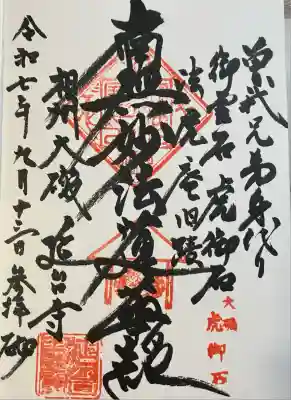 曽我兄弟身代り
御霊石 虎御石
法虎庵旧蹟
南無妙法蓮華経
相州大磯 延台寺
令和七年九月十三日 参拝砌
大磯
虎御石